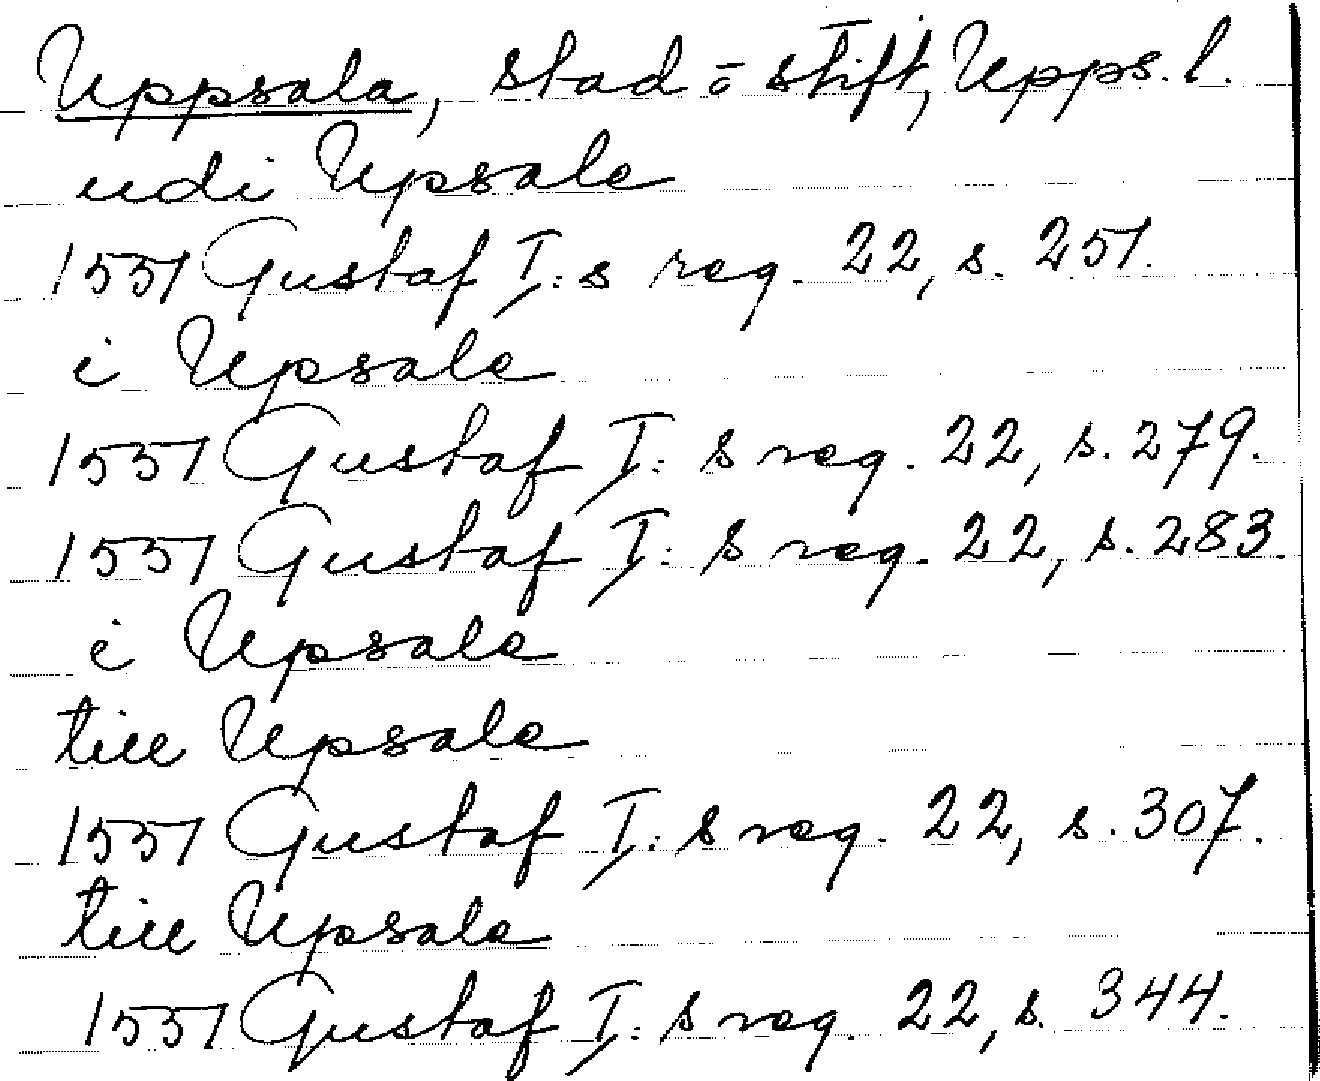 Uppsala, stad o stift, Upps. l.
udi Upsale
1551 Gustaf I: s reg. 22, s. 251.
i Upsale
1551 Gustaf I: s reg. 22, s. 279.
1551 Gustaf I: s reg. 22, s. 283.
i Upsale
till Upsale
1551 Gustaf I: s reg. 22, s. 307.
till Upsale
1551 Gustaf I: s reg. 22, s. 344.